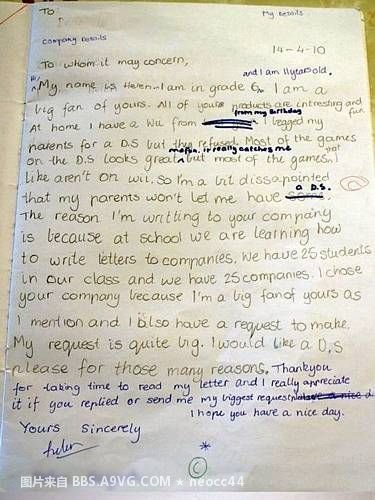 To:
My Details
Company Details
14-4-10
To whom it may concern,
and I am 11 years old.
Hi, My name is Helen. I am in grade 6. I am a
big fan of yours. All of your products are intresting and fun.
At home I have a Wii from from my Birthday I begged my
parents for a D.S but they refused. Most of the games
on the D.S looks great and fun, it really catches me but most of the games, that I
like aren't on Wii. So I'm a bit dissapointed
that my parents won't let me have a D.S.
The reason I'm writting to your company
is because at school we are learning how
to write letters to companies. We have 25 students
in our class and we have 25 companies. I chose
your company because I'm a big fan of yours as
I mention and I also have a request to make.
My request is quite big. I would like a D.S
please for those many reasons. Thankyou
for taking time to read my letter and I really appreciate
it if you replied or send me my biggest request. Have a nice d
I hope you have a nice day.
Yours Sincerely
Helen
C
图片来自 BBS.A9VG.COM ★ neocc44